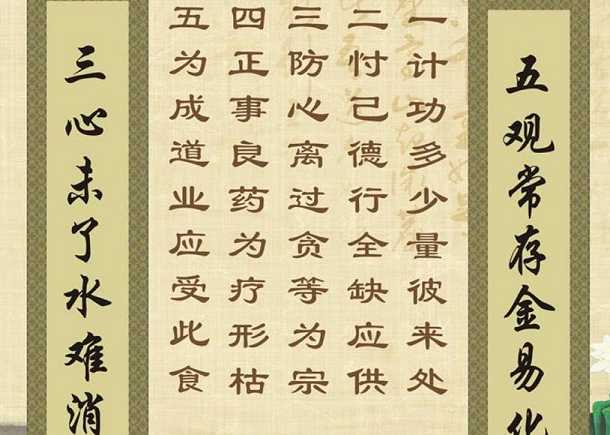 五观常存金易化
一计功多少量彼来处
二忖己德行全缺应供
三防心离过贪等为宗
四正事良药为疗形枯
五为成道业应受此食
三心未了水难消